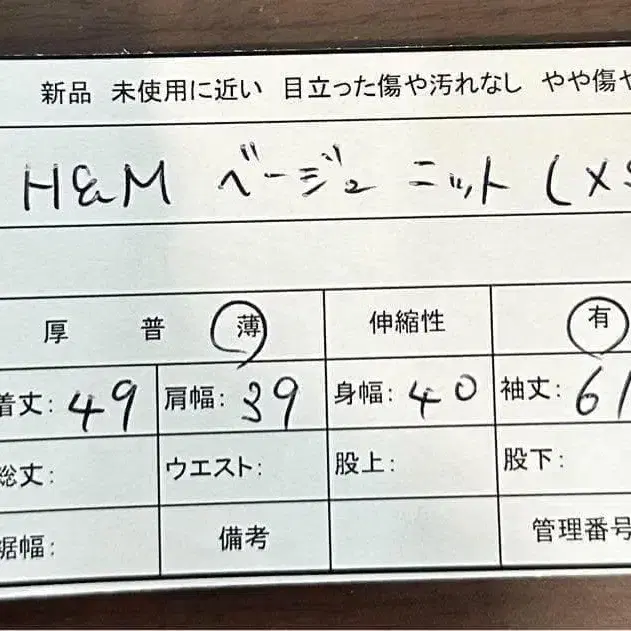 新品 未使用に近い 目立った傷や汚れなし やや傷や
H&M ベージュ ニット (XS
厚 普 薄 伸縮性 有
着丈: 49 肩幅: 39 身幅: 40 袖丈: 61
総丈: ウエスト: 股上: 股下:
裾幅: 備考 管理番号